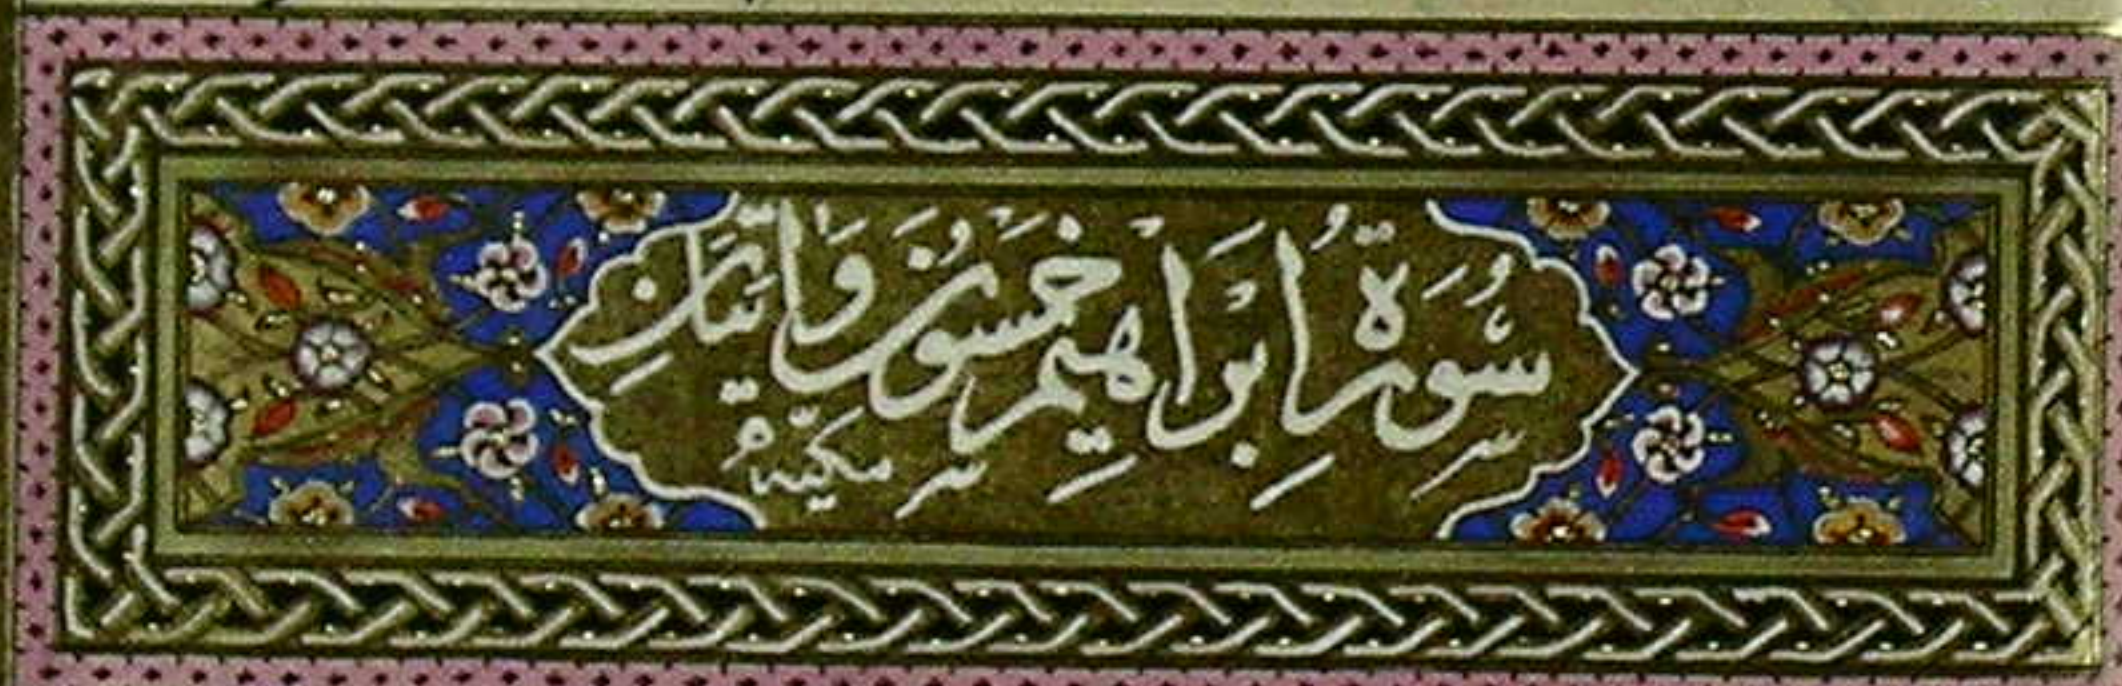 سُورَةُ اِبْرٰاهِيمَ خَمْسُونَ وَاٰيَتَانِ
مَكِّيَّةٌ